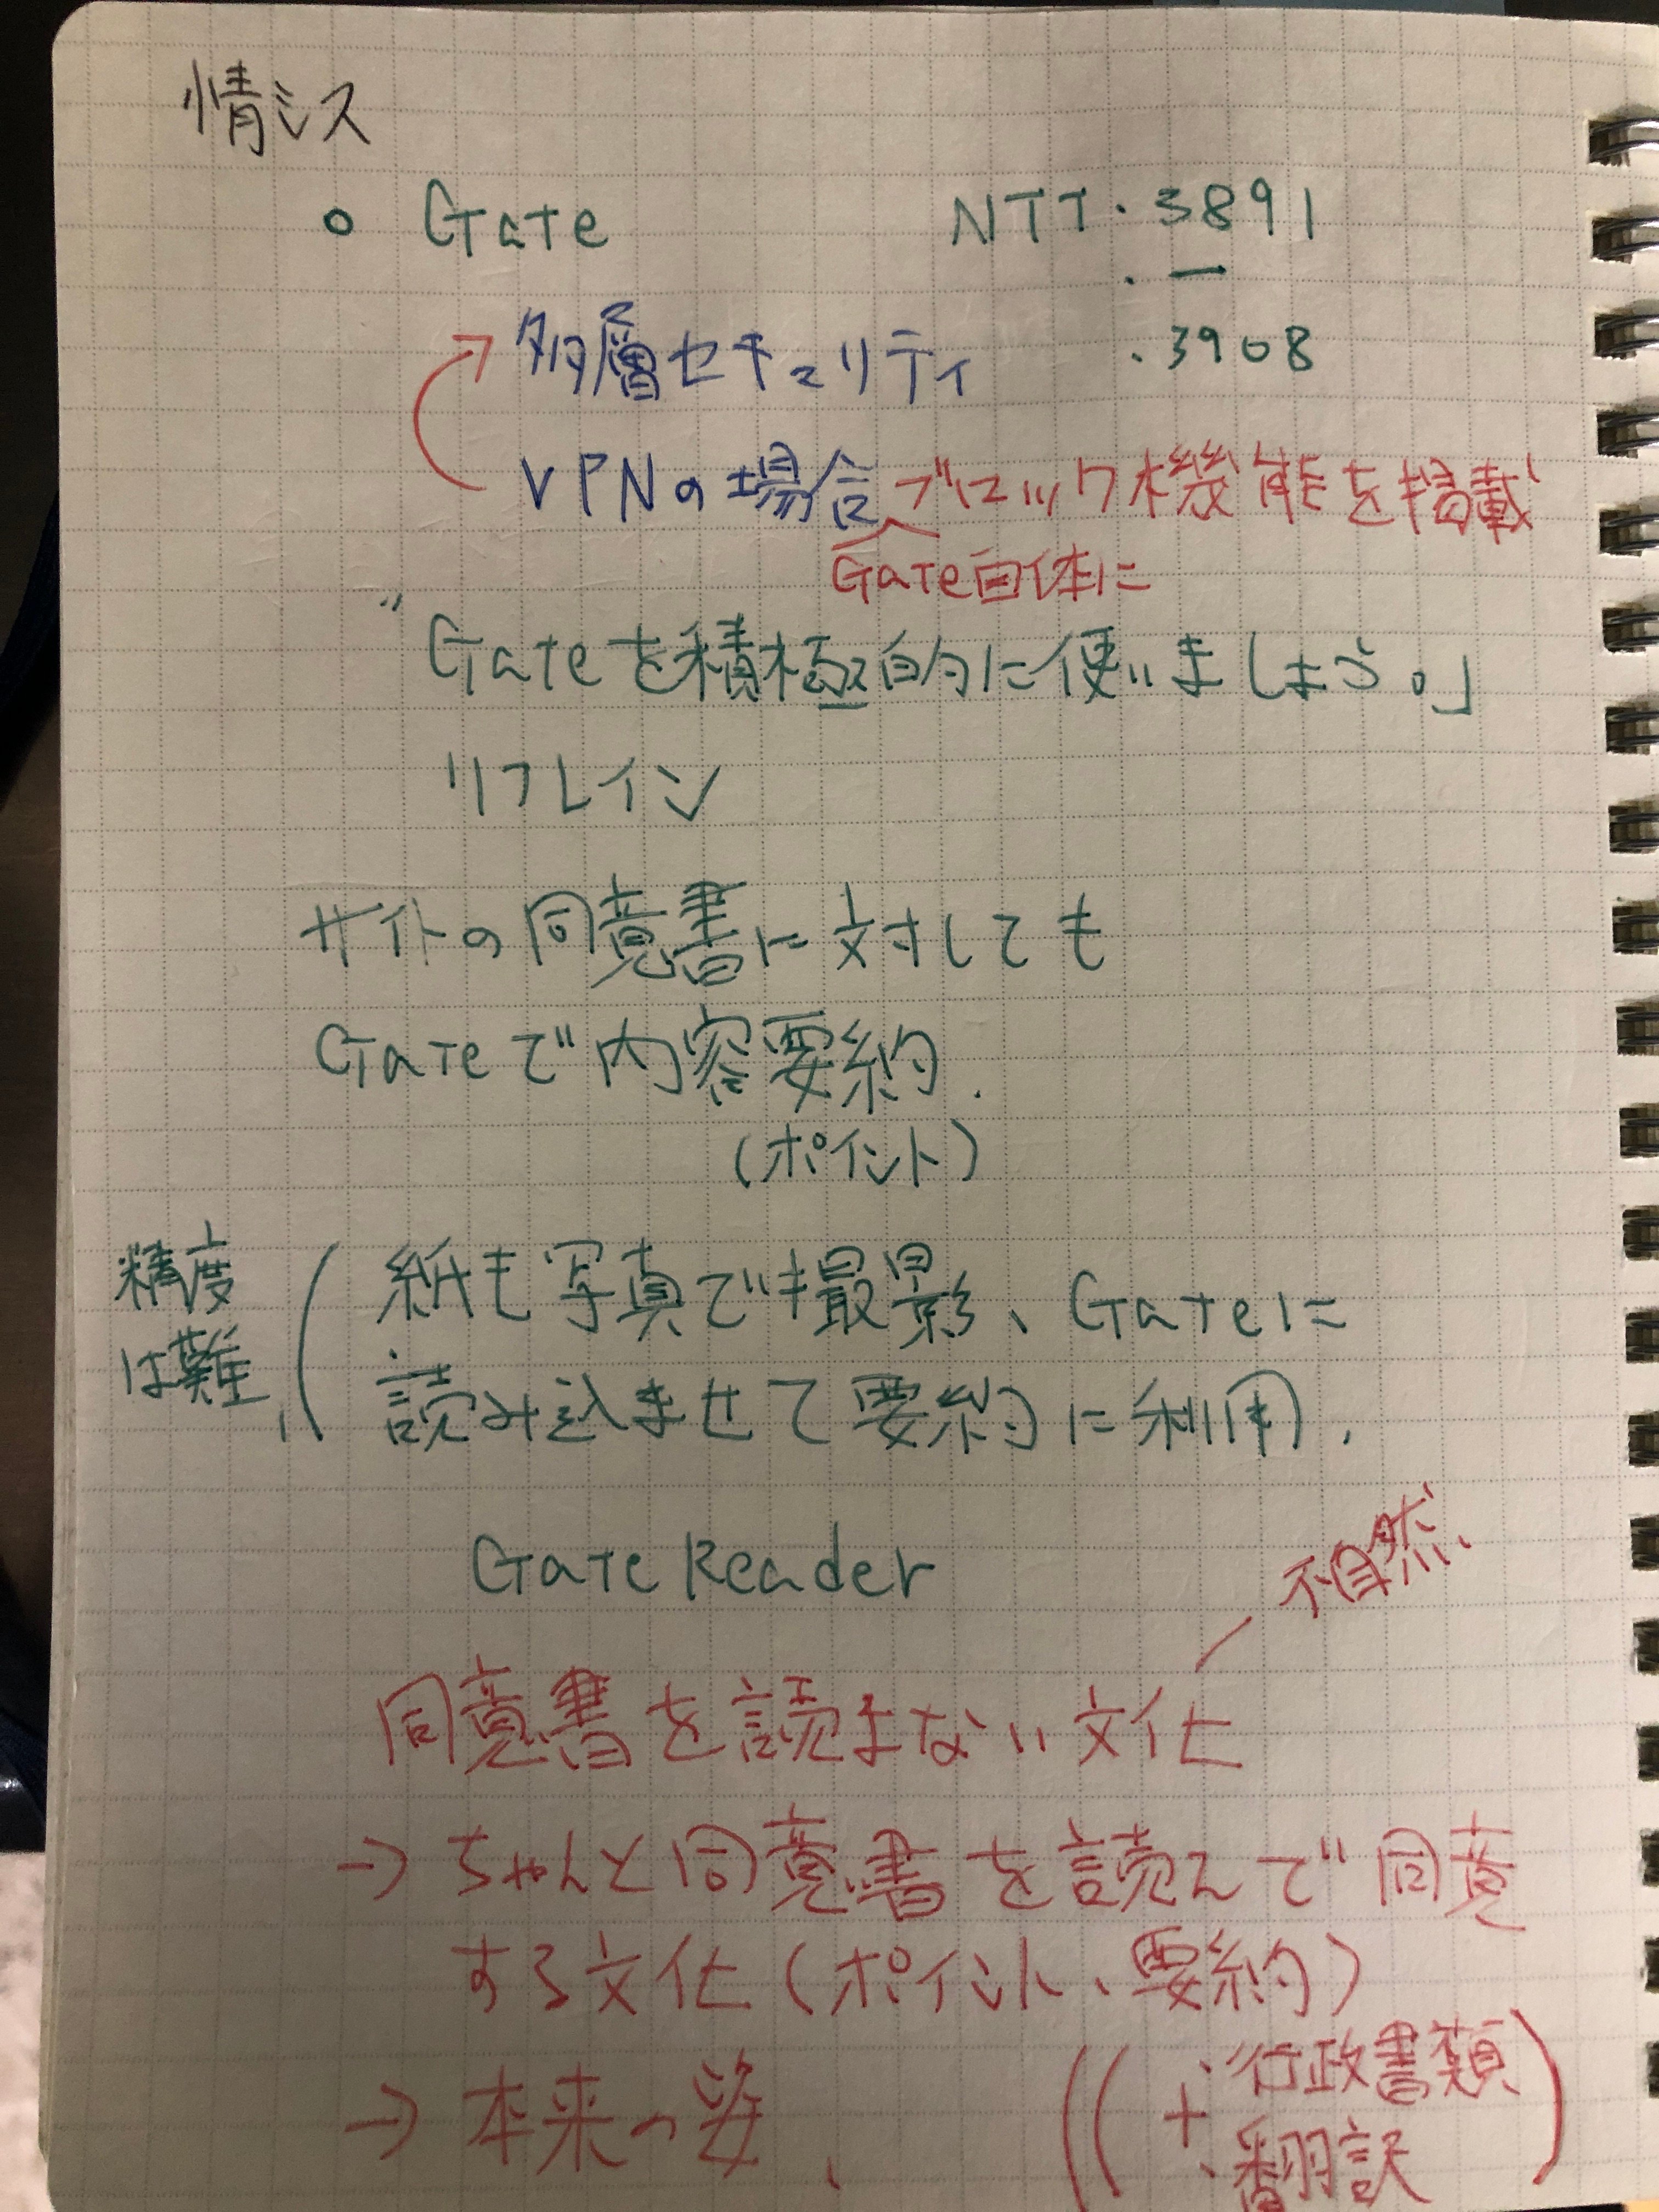 情シス
○ Gate NTT・3891
・ー
多層セキュリティ ・3908
VPNの場合ブロック機能を搭載
Gate自体に
"Gateを積極的に使いましょう。」
リフレイン
サイトの同意書に対しても
Gateで内容要約.
(ポイント)
精度
は難、
紙も写真で撮影、Gateに
読み込ませて要約に利用.
Gate Reader
不自然、
同意書を読まない文化
→ ちゃんと同意書を読んで同意
する文化(ポイント、要約)
→ 本来の姿、
((+・行政書類
・翻訳)